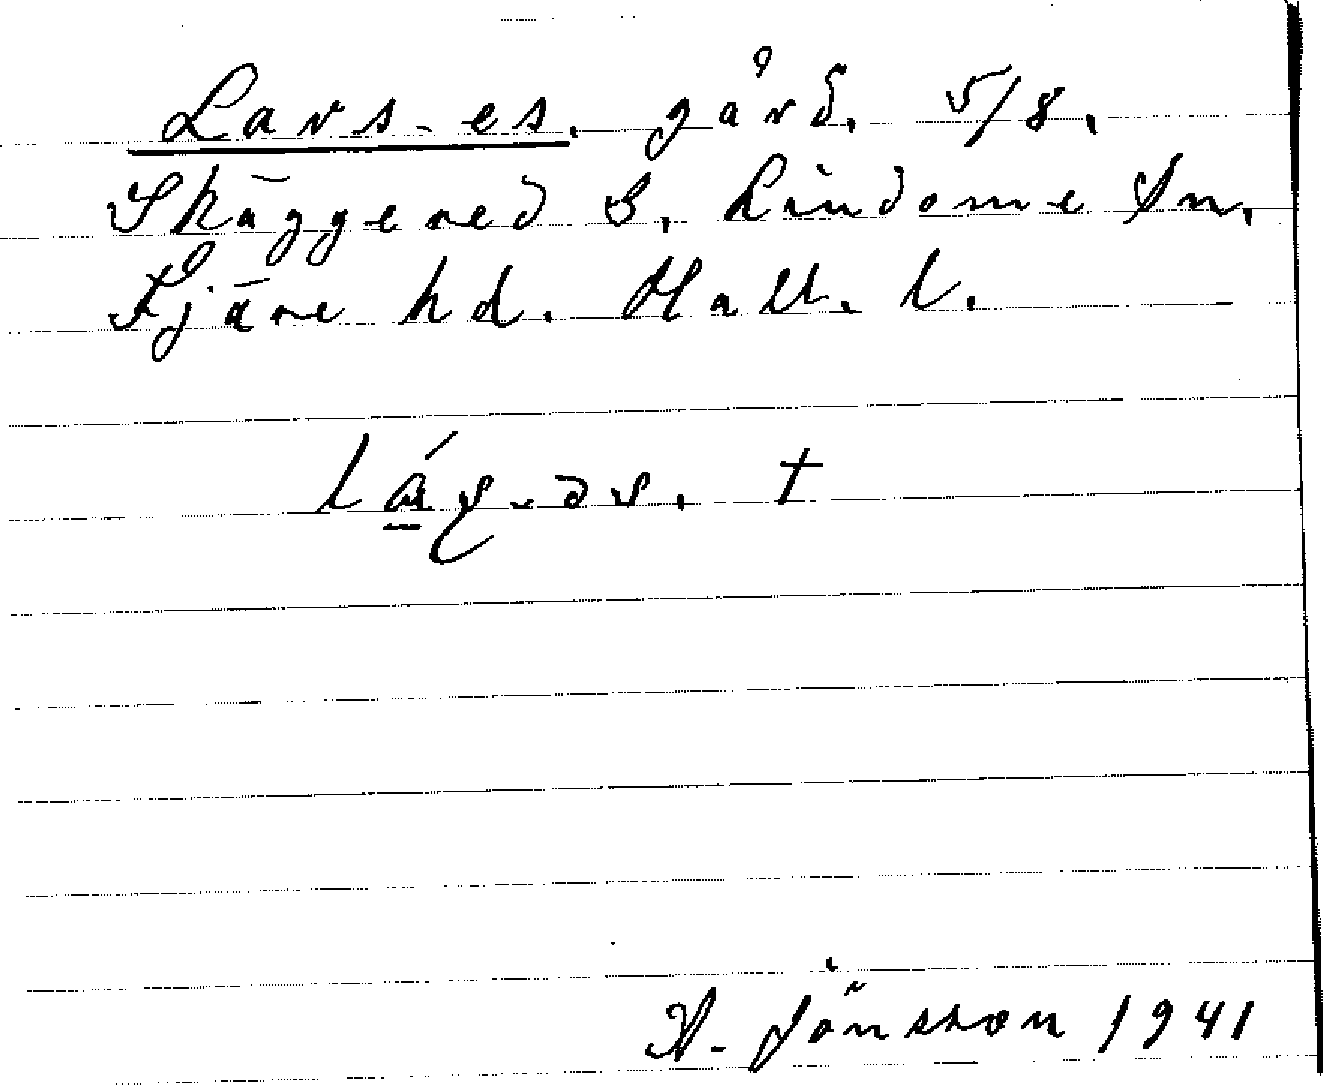 Lars-es. gård. 5/8.
Skäggered S. Lindome Sn.
Fjäre hd. Hall. l.
†
A. Jönsson 1941